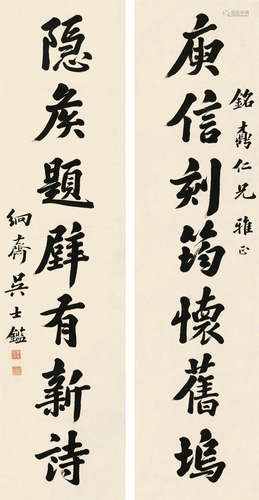 銘壽仁兄雅正
庾信刻筠懷舊塢
隱侯題壁有新詩
絅齋吳士鑑